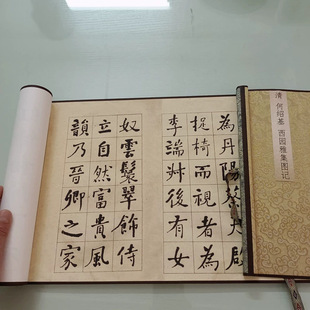 清 何绍基 西园雅集图记
為丹陽蔡天啟
捉椅而視者為
李端叔後有女
奴雲鬟翠飾侍
立自然富貴風
韻乃晉卿之家